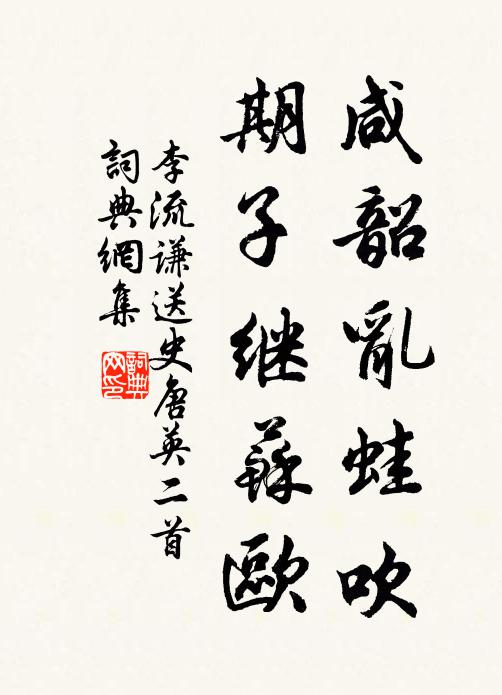 咸韶亂蛙吹
期子继蘇歐
李流谦送史唐英二首
詞典網集
詞典网印